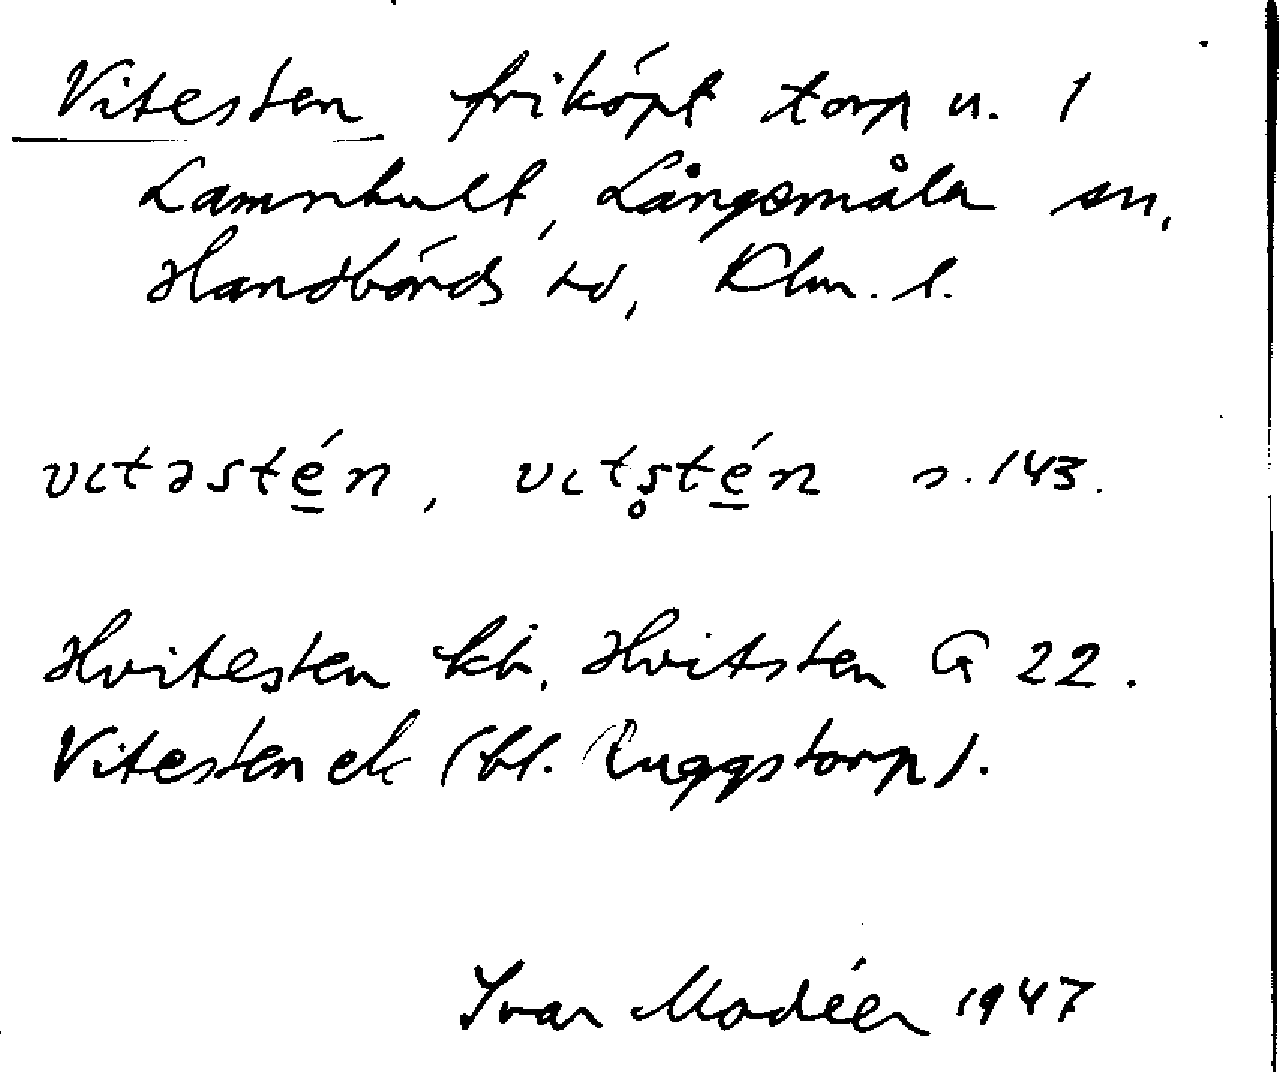 Vitesten friköpt torp u. 1
Lamnhult, Långsmåla sn,
Handbörds hd, Klm. l.
vɩtəstén, vɩts̥tén s. 143.
Hvitesten kb. Hvitsten G 22.
Vitesten ek (bl. Ruggstorp).
Ivar Modéer 1947